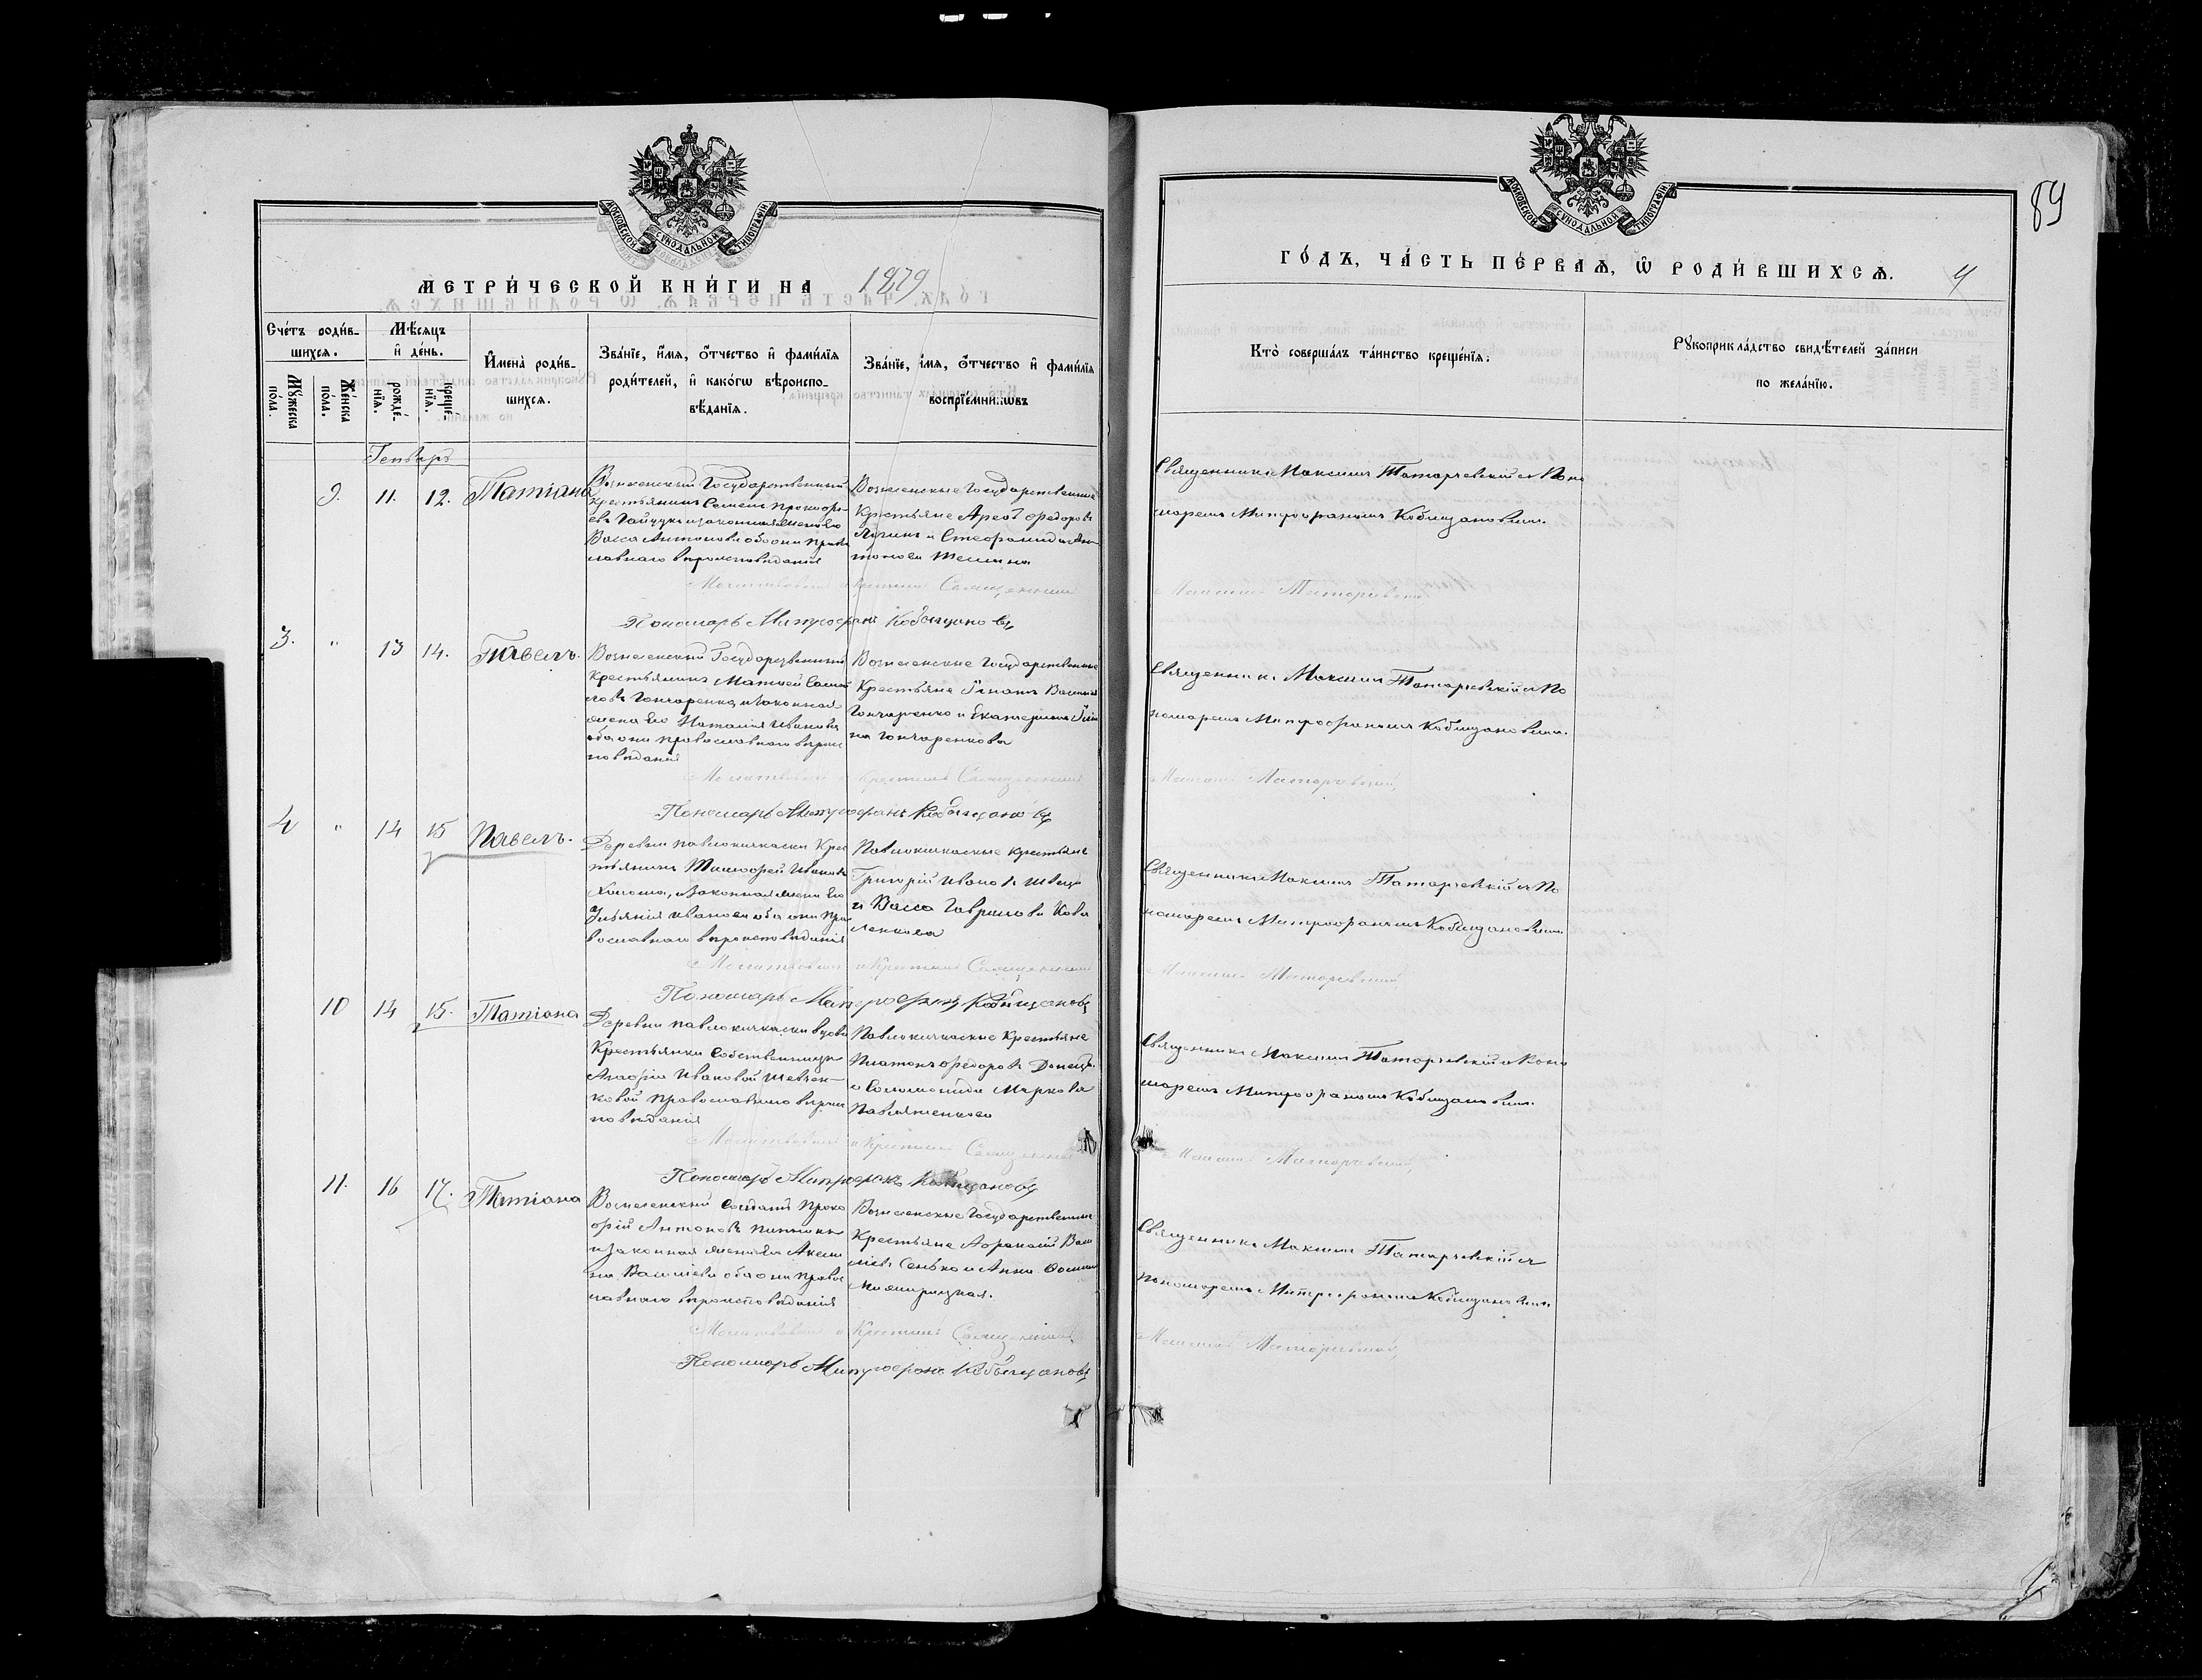 МОСКОВСКОЙ СѴНОДАЛЬНОЙ ТИПОГРАФІИ
МЕТРИ́ЧЕСКОЙ КНИ́ГИ НА 1879
Сче́тъ роди́в-
шихсѧ.
Мѣ́сѧцъ
и҆ де́нь.
Мꙋ́жеска по́ла.
Же́нска по́ла.
рожде́-
нїѧ.
креще́-
нїѧ.
И҆мена̀ роди́в-
шихсѧ.
Зва́нїе, и҆́мѧ, ѻ҆́тчество и҆ фами́лїѧ
роди́телей, и҆ како́гѡ вѣроиспо-
вѣ́данїѧ.
Зва́нїе, и҆́мѧ, ѻ҆́тчество и҆ фами́лїѧ
воспрїе́мникѡвъ
Генварь
9. 11. 12. Татіана
Вознесенскій Государственный
крестьянинъ Семенъ Прокофі-
евъ и законная жена его
Васса Антонова обоони право
славнаго вѣроисповѣданія
Вознесенские Государственные
Крестьяне Федоровъ
и Стефанида Ан-
тонова
Молитвовалъ и крестилъ Священникъ
Пономарь Митрофанъ Кобищановъ
3. " 13 14. Павелъ.
Вознесенскій Государственный
крестьянинъ Матвей Самой
ловъ Гончаренко, и законная
жена его Наталія Иванова
обаони православнаго вѣроис
повѣданія
Вознесенские Государственные
Крестьяне Игнатъ Васильевъ
Гончаренко и Екатерина
на Гончаренкова
Молитвовалъ и Крестилъ Священникъ
Пономарь Митрофанъ Кобищановъ
4 " 14 15 Павелъ.
Деревни Павлокичкаски Крес
тьянинъ Тимофей Ивановъ
и законная жена его
Ульянія Иванова оба они пра
вославнаго вѣроисповѣданія
Павлокичкаские крестьяне
Григорій Ивановъ Швецъ
и Васса Гаврилова Кова
ленкова
Молитвовалъ и Крестилъ Священникъ
Пономарь Митрофанъ Кобищановъ
10 14 15. Татіана
Деревни Павлокичкаски вдовы
Крестьянки Собственницы
Агафіи Ивановой Шевчен-
ковой православнаго вѣроис
повѣданія
Павлокичкаские Крестьяне
Платонъ Федоровъ Донецъ
и Соломонида Маркова
Павлюченкова
Молитвовалъ и Крестилъ Священникъ
Пономарь Митрофанъ Кобищановъ
11. 16 17. Татіана
Вознесенскій Солдатъ Проко
фій Антоновъ
и законная жена его Аксин
ия Васильева обаони право
славнаго вѣроисповѣданія
Вознесенские Государственные
Крестьяне Афанасій Васи
льевъ Сенько и Анна

Молитвовалъ и Крестилъ Священникъ
Пономарь Митрофанъ Кобищановъ
89
ГО́ДЪ, ЧА́СТЬ ПЕ́РВАѦ, Ѡ҆ РОДИ́ВШИХСѦ. 4
Кто̀ соверша́лъ та́инство креще́нїѧ.
Рꙋкоприкла́дство свидѣ́телей за́писи
по жела́нїю.
Священникъ Максимъ Татарчевскій съ Поно
маремъ Митрофаномъ Кобищановымъ.
Максимъ Татарчевскій
Священникъ Максимъ Татарчевскій съ По
номаремъ Митрофаномъ Кобищановымъ.
Максимъ Татарчевскій,
Священникъ Максимъ Татарчевскій съ По
номаремъ Митрофаномъ Кобищановымъ
Максимъ Татарчевскій
Священникъ Максимъ Татарчевскій съ Поно
маремъ Митрофаномъ Кобищановымъ.
Максимъ Татарчевскій,
Священникъ Максимъ Татарчевскій съ
Пономаремъ Митрофаномъ Кобищановымъ
Максимъ Татарчевскій,